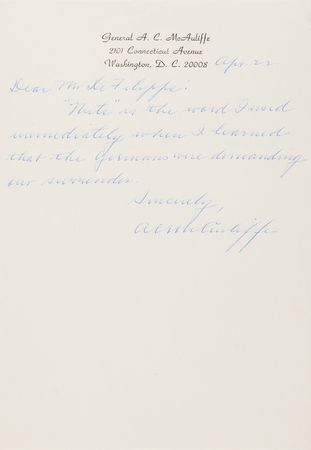 General A. C. McAuliffe
2101 Connecticut Avenue
Washington, D. C. 20008
Apr 22
Dear Mr De Filipps:
"Nuts" is the word I used
immediately when I learned
that the Germans were demanding
our surrender.
Sincerely,
A C McAuliffe